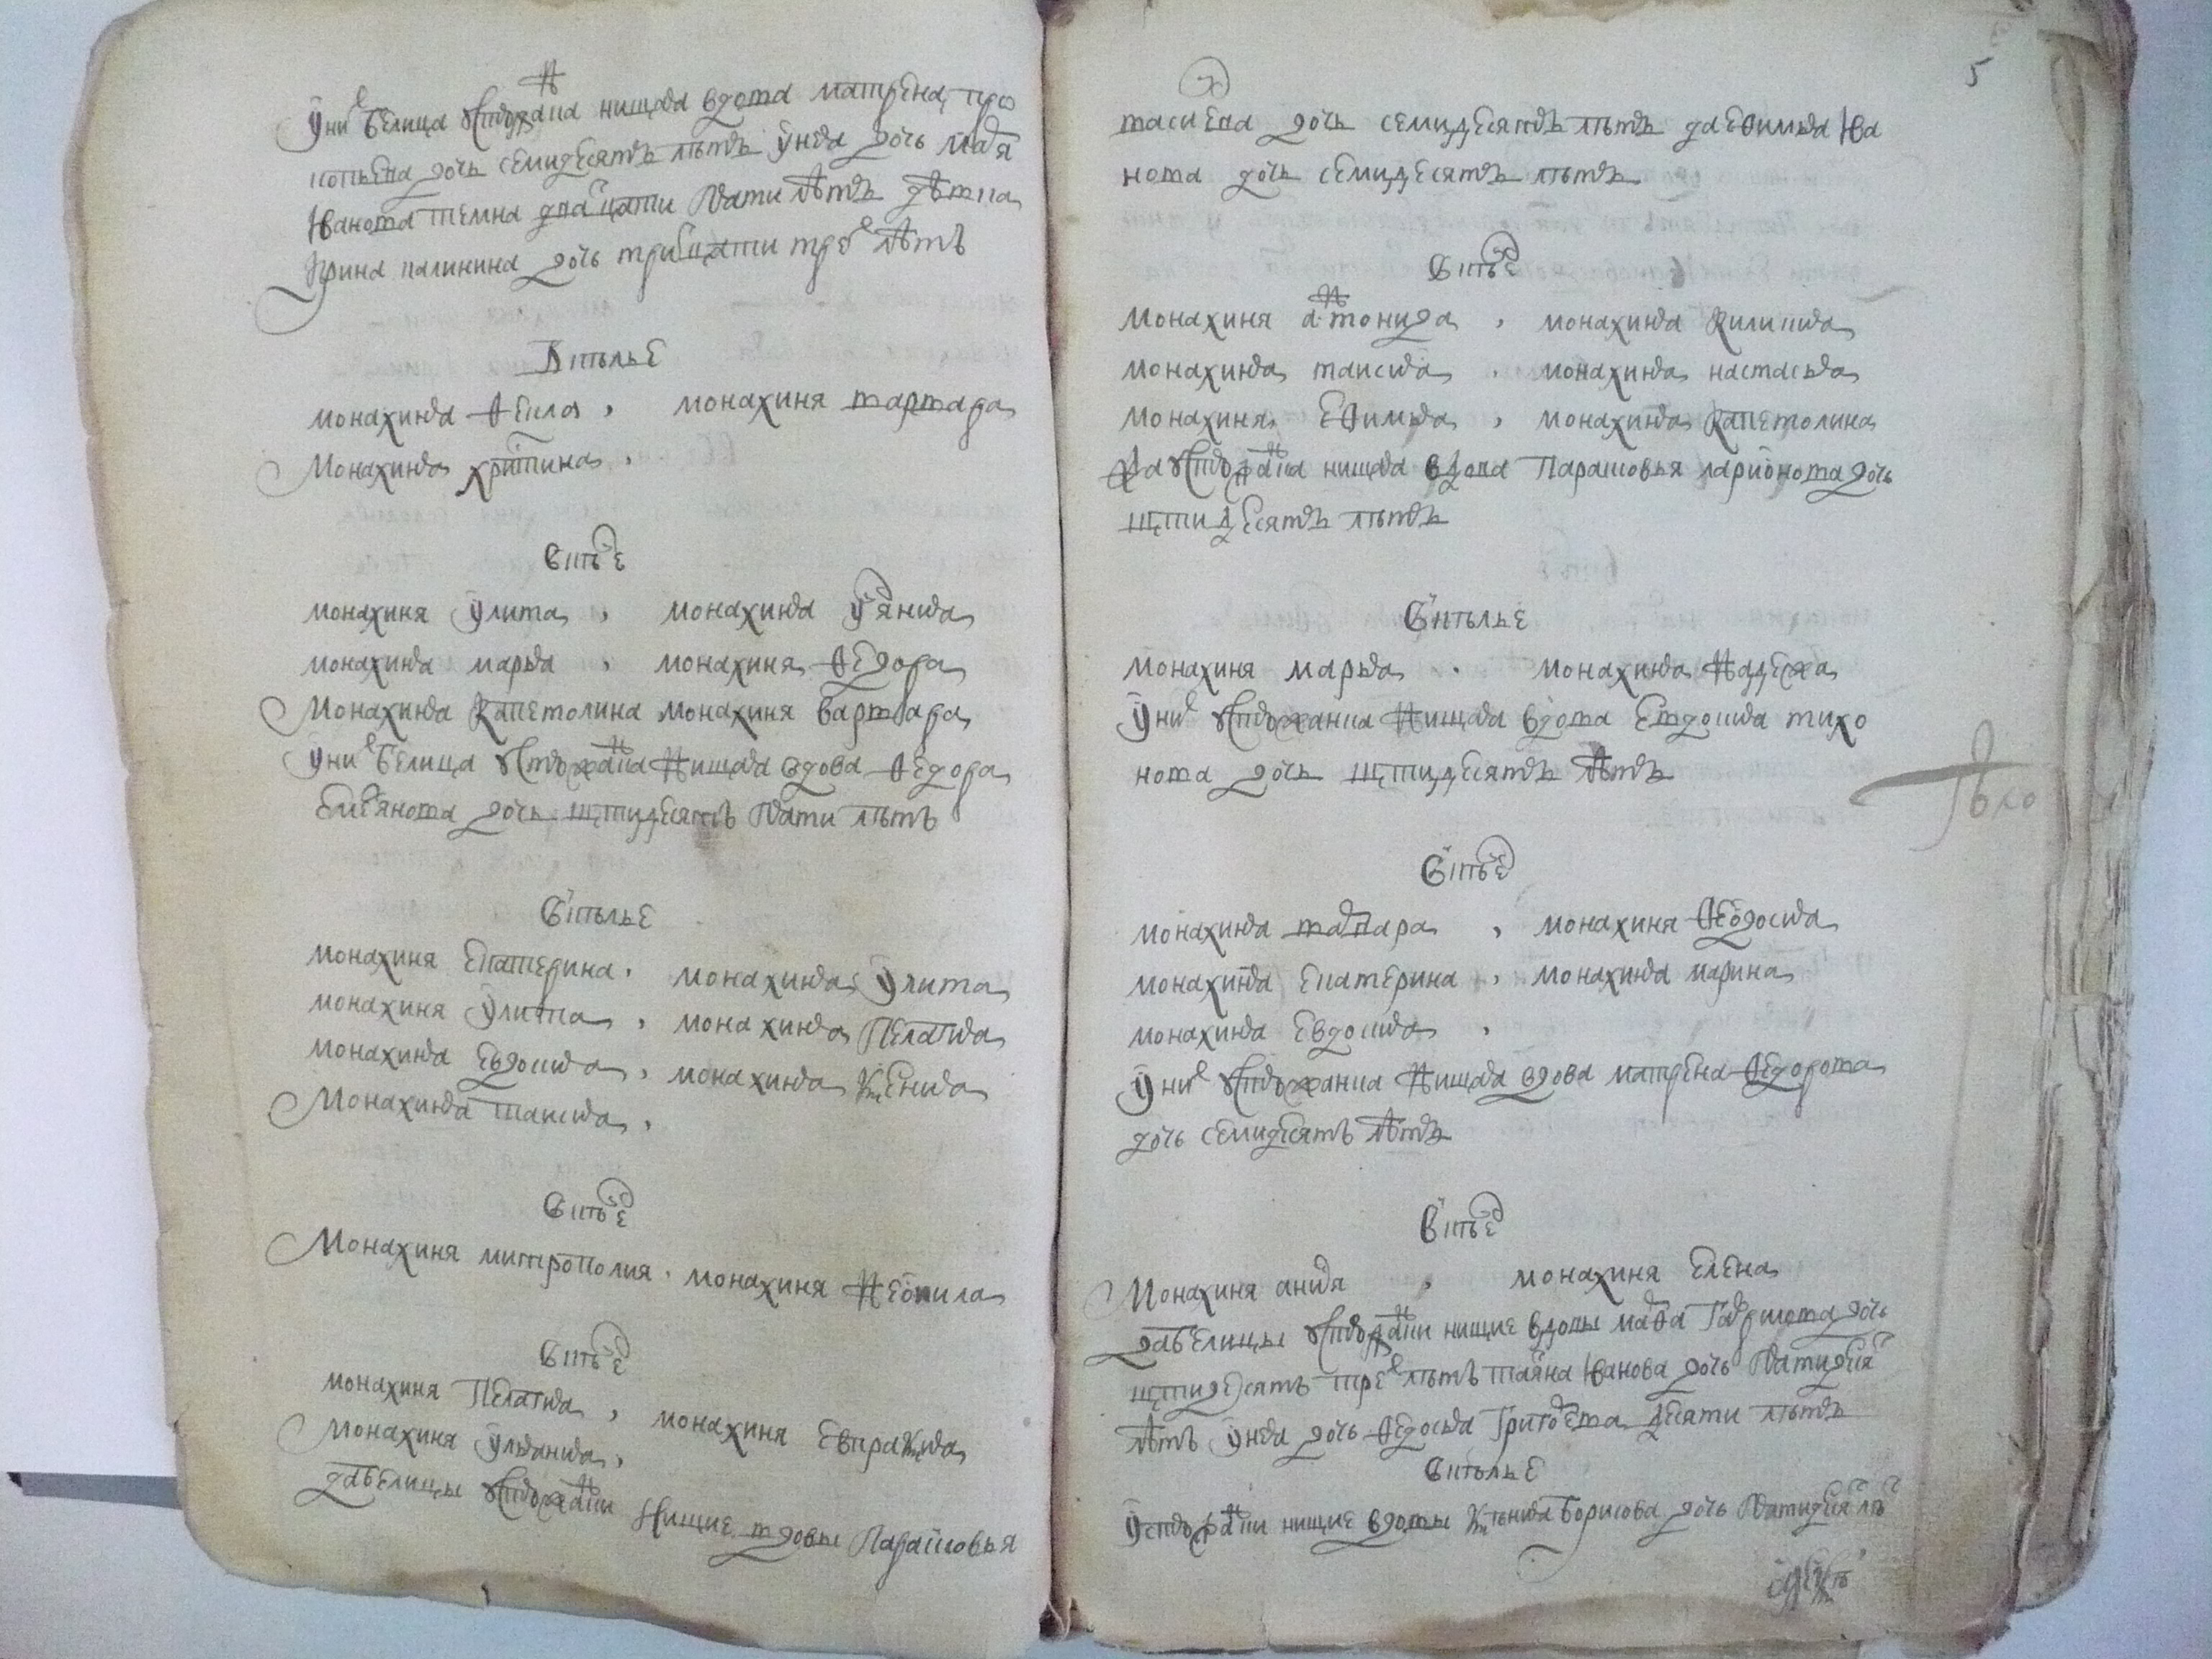 У них белица подгорожанка нищая вдова матрена про
кофьева дочь семидесятъ летъ у нея дочь мавра
Иванова темна двацати пяти летъ девка
Ирина калинина дочь трицати трех летъ
В кѣлье
монахиня Фекла , монахиня варвара
Монахиня христина ,
В кѣлье
монахиня Улита , монахиня Ульяния
монахиня марья , монахиня Федора
Монахиня Капетолина монахиня варвара
У них белица нищая вдова Федора
Емельянова дочь штидесятъ пяти летъ
В кѣлье
монахиня Екатерина , монахиня Улита
монахиня Улита , монахиня Пелагия
монахиня Евдокия , монахиня Ксения
Монахиня таисия ,
В кѣлье
Монахиня митрополия , монахиня Неонила
В кѣлье
монахиня Пелагия , монахиня Евпраксия
Монахиня Ульяния ,
да белицы нищие вдовы Парасковья
5
васильева дочь семидесятъ летъ да Ефимья Ива
нова дочь семидесятъ летъ
В кѣлье
Монахиня антонида , монахиня Киликия
монахиня таисия , монахиня настасья
Монахиня Ефимья , монахиня Капетолина
Да нищая вдова Парасковья ларионова дочь
штидесятъ летъ
В кѣлье
монахиня марья , монахиня Надежа
У них нищая вдова Евдокия тихо
нова дочь штидесятъ летъ
В кѣлье
монахиня варвара , монахиня Феодосия
монахиня Екатерина , монахиня марина
монахиня Евдокия ,
У них нищая вдова матрена Федорова
дочь семидесятъ летъ
В кѣлье
Монахиня , монахиня Елена
да белицы нищие вдовы Гаврилова дочь
штидесятъ трех летъ татьяна Иванова дочь пятидесят
летъ у нея дочь Федосья Григорьева десяти летъ
В кѣлье
нищие вдовы Ксенья Борисова дочь пятидесят лет